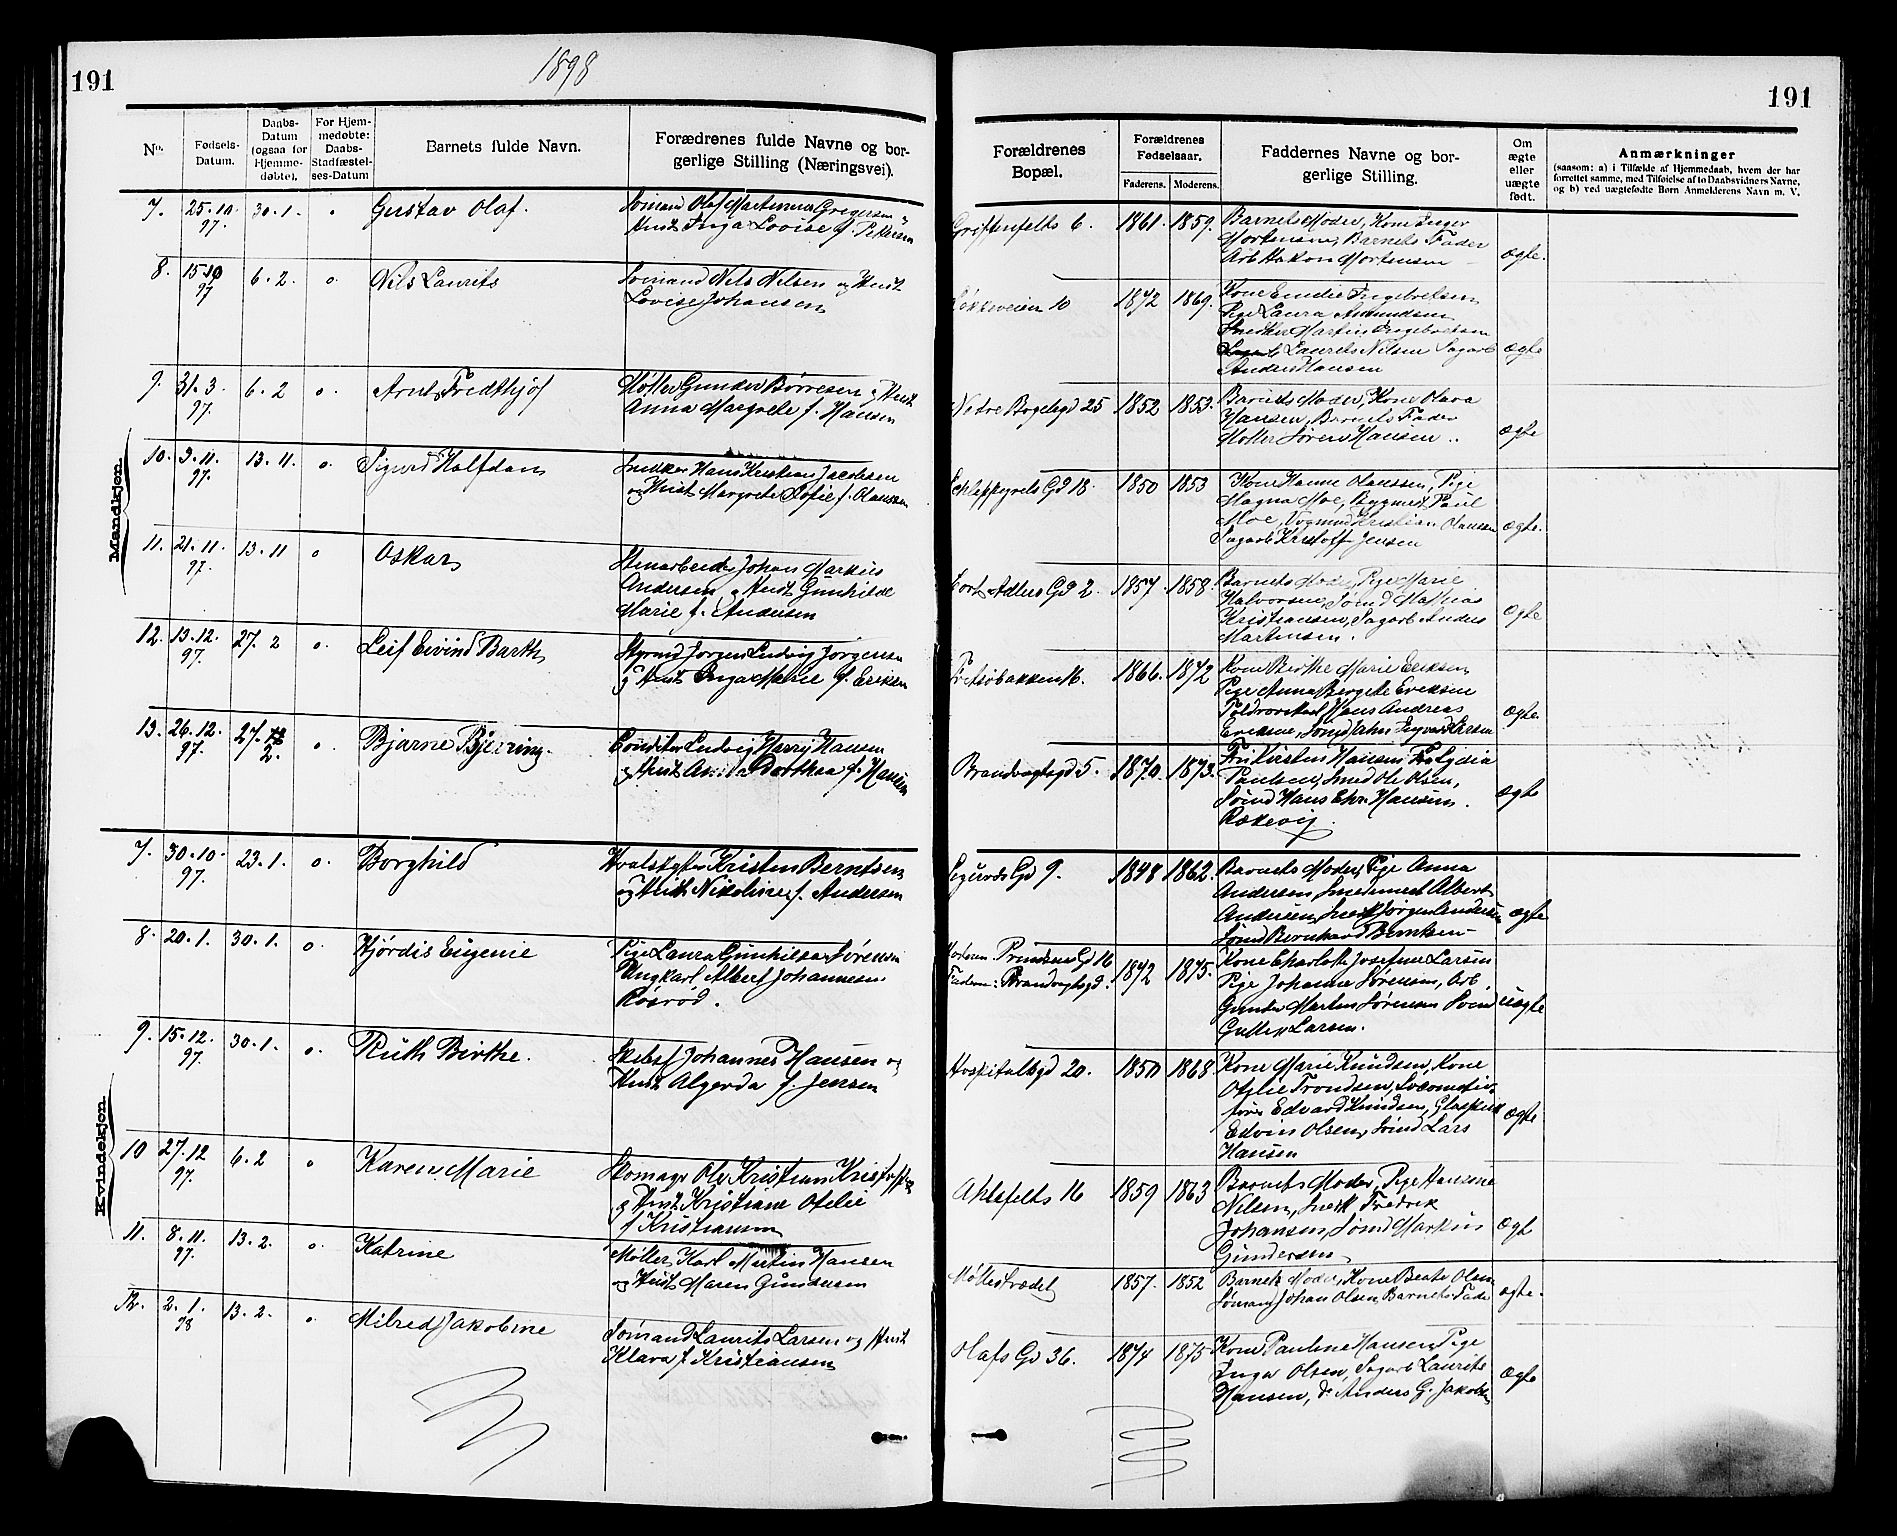 191
1898
191
No.
Fødsels-
Datum.
Daabs-
Datum
(ogsaa for
Hjemme-
døbte).
For Hjem-
medøbte:
Daabs-
Stadfæstel-
ses-Datum
Barnets fulde Navn.
Forædrenes fulde Navne og bor-
gerlige Stilling (Næringsvei).
Forældrenes
Bopæl.
Forældrenes
Fødselsaar.
Faderens.
Moderens.
Faddernes Navne og bor-
gerlige Stilling.
Om
ægte
eller
uægte
født.
Anmærkninger
(saasom: a) i Tilfælde af Hjemmedaab, hvem der har
forrettet samme, med Tilføielse af to Daabsvidners Navne,
og b) ved uægtefødte Børn Anmelderens Navn m. V.
Mandkjøn.
7. 25.10.97. 30.1. o Gustav Olaf.
Sømand Olaf Martinius Gregersen og
Hust Inga Lovise f. Pettersen
Griffenfelts 6. 1861. 1859.
Barnets Moder, Kone Inger
Mortensen, Barnets Fader
Arb Hakon Mortensen
ægte.
8. 15.10.97 6.2. o. Nils Laurits
Sømand Nils Nilsen og Hust
Lovise Johansen
Løkkeveien 10 1872 1869.
Kone Emilie Ingebretsen
Pige Laura Amundsen
Snedker Martin Ingebretsen
Laurits Nilsen Sagarb
Anders Hansen
ægte
9. 31.3.97. 6.2 o. Arnt Fredthjof
Møller Gunder Børresen og Hust
Anna Margrete f. Hansen
Nedre Bøgelsgd 25 1852 1853.
Barnets Moder, Kone Olava
Hansen, Barnets Fader
Møller Søren Hansen
ægte
10. 9.11.97. 13.11. o. Sigurd Halfdan
Snedker Hans Kristian Jacobsen
og Hust Margrete Sofie f. Olaussen
Schleppegrels Gd 18. 1850 1853
Kone Hanne Olaussen, Pige
Magna Moe, Bygmest Paul
Moe, Vognmd Kristian Olaussen
Sagarb Kristoff Jensen
ægte.
11. 21.11.97. 13.11 o Oskar
Stenarbeider Johan Markus
Andersen og Hust Gunhilde
Marie f. Andersen
Cort Adlers Gd 2. 1857. 1858.
Barnets Moder, Pige Marie
Halvorsen, Sømd Mathias
Kristiansen, Sagarb Anders
Martinsen.
ægte
12. 13.12.97. 27.2 o. Leif Eivind Barth
Styrmd Jørgen Ludvig Jørgensen
og Hust Inga Marie f. Eriksen
Fritsøbakken 16. 1866. 1872
Kone Birthe Marie Eriksen
Pige Anna Bergete Eriksen
Toldrorskarl Hans Andreas
Eriksen, Sømd Jahn Ingvard Larsen
ægte.
13. 26.12.97. 27.2. o Bjarne Bjerring.
Conditor Ludvig Harry Hansen
og Hust Anna Dorthea f. Hansen
Brandvagtsgd 5. 1870. 1873.
Fru Kirsten Hansen Fr. Lydia
Paulsen, Smed Ole Olsen,
Sømd Hans Chr. Hansen
Rækevig.
ægte
Kvindekjøn.
7. 30.10.97. 23.1. o. Borghild
Hvalskytter Kristen Berntsen
og Hust Nikoline f. Andersen
Sigurds Gd 9. 1848 1862.
Barnets Moder, Pige Anna
Andersen, Smedmest Albert
Andersen, Snedk Jørgen Andersen
Sømd Bernhard Berntsen
ægte
8. 20.1. 30.1. o. Hjørdis Eugenie
Pige Laura Gunhilda Sørensen
Ungkarl Albert Johannesen
Rosrød.
Moderen Prindsens Gd 16
Faderen: Brandvagtsgd. 1872 1875.
Kone Charlotte Josefine Larsen
Pige Johanna Sørensen, Arb.
Gunder Martin Sørensen Sømd
Gullik Larsen.
uægte
9. 15.12.97. 30.1. o. Ruth Birthe.
Skibsf Johannes Hansen og
Hust Algerda f. Jensen
Hospitalsgd 20. 1850 1868
Kone Marie Knudsen, Kone
Otelie Trondsen, Locomotiv-
fører Edvard Knudsen, Glaspust
Edvin Olsen, Sømd Lars
Hansen
ægte
10 27.12.97. 6.2 o Karen Marie
Skomagr Ole Kristian Kristoffersen
og Hust Kristiane Otelie
f Kristiansen
Ahlefelts 16 1859 1863
Barnets Moder, Pige Hansine
Nilsen, Snedk Fredrik
Johansen, Sømd Markus
Gundersen
ægte
11. 8.11.97. 13.2. o. Katrine
Møller Karl Martin Hansen
og Hust Maren Gundersen
Møllestrædet 1857. 1852
Barnets Moder, Kone Beate Olsen
Sømand Johan Olsen, Barnets Fader
ægte.
12. 2.1.98 13.2. o. Milred Jakobine
Sømand Laurits Larsen og Hust
Klara f Kristiansen
Olafs Gd 36. 1874 1875
Kone Pauline Hansen, Pige
Inga Olsen, Sagarb Laurits
Hansen, do Anders G. Jakobsen
ægte